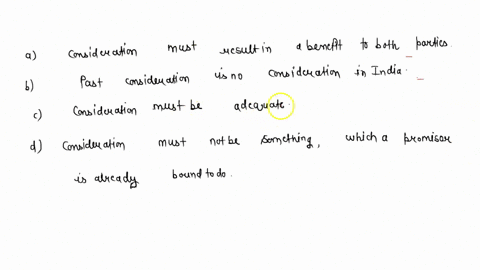 a) consideration must result in a benefit to both parties.
b) Past consideration is no consideration in India.
c) Consideration must be adequate.
d) Consideration must not be something, which a promisor
is already bound to do.